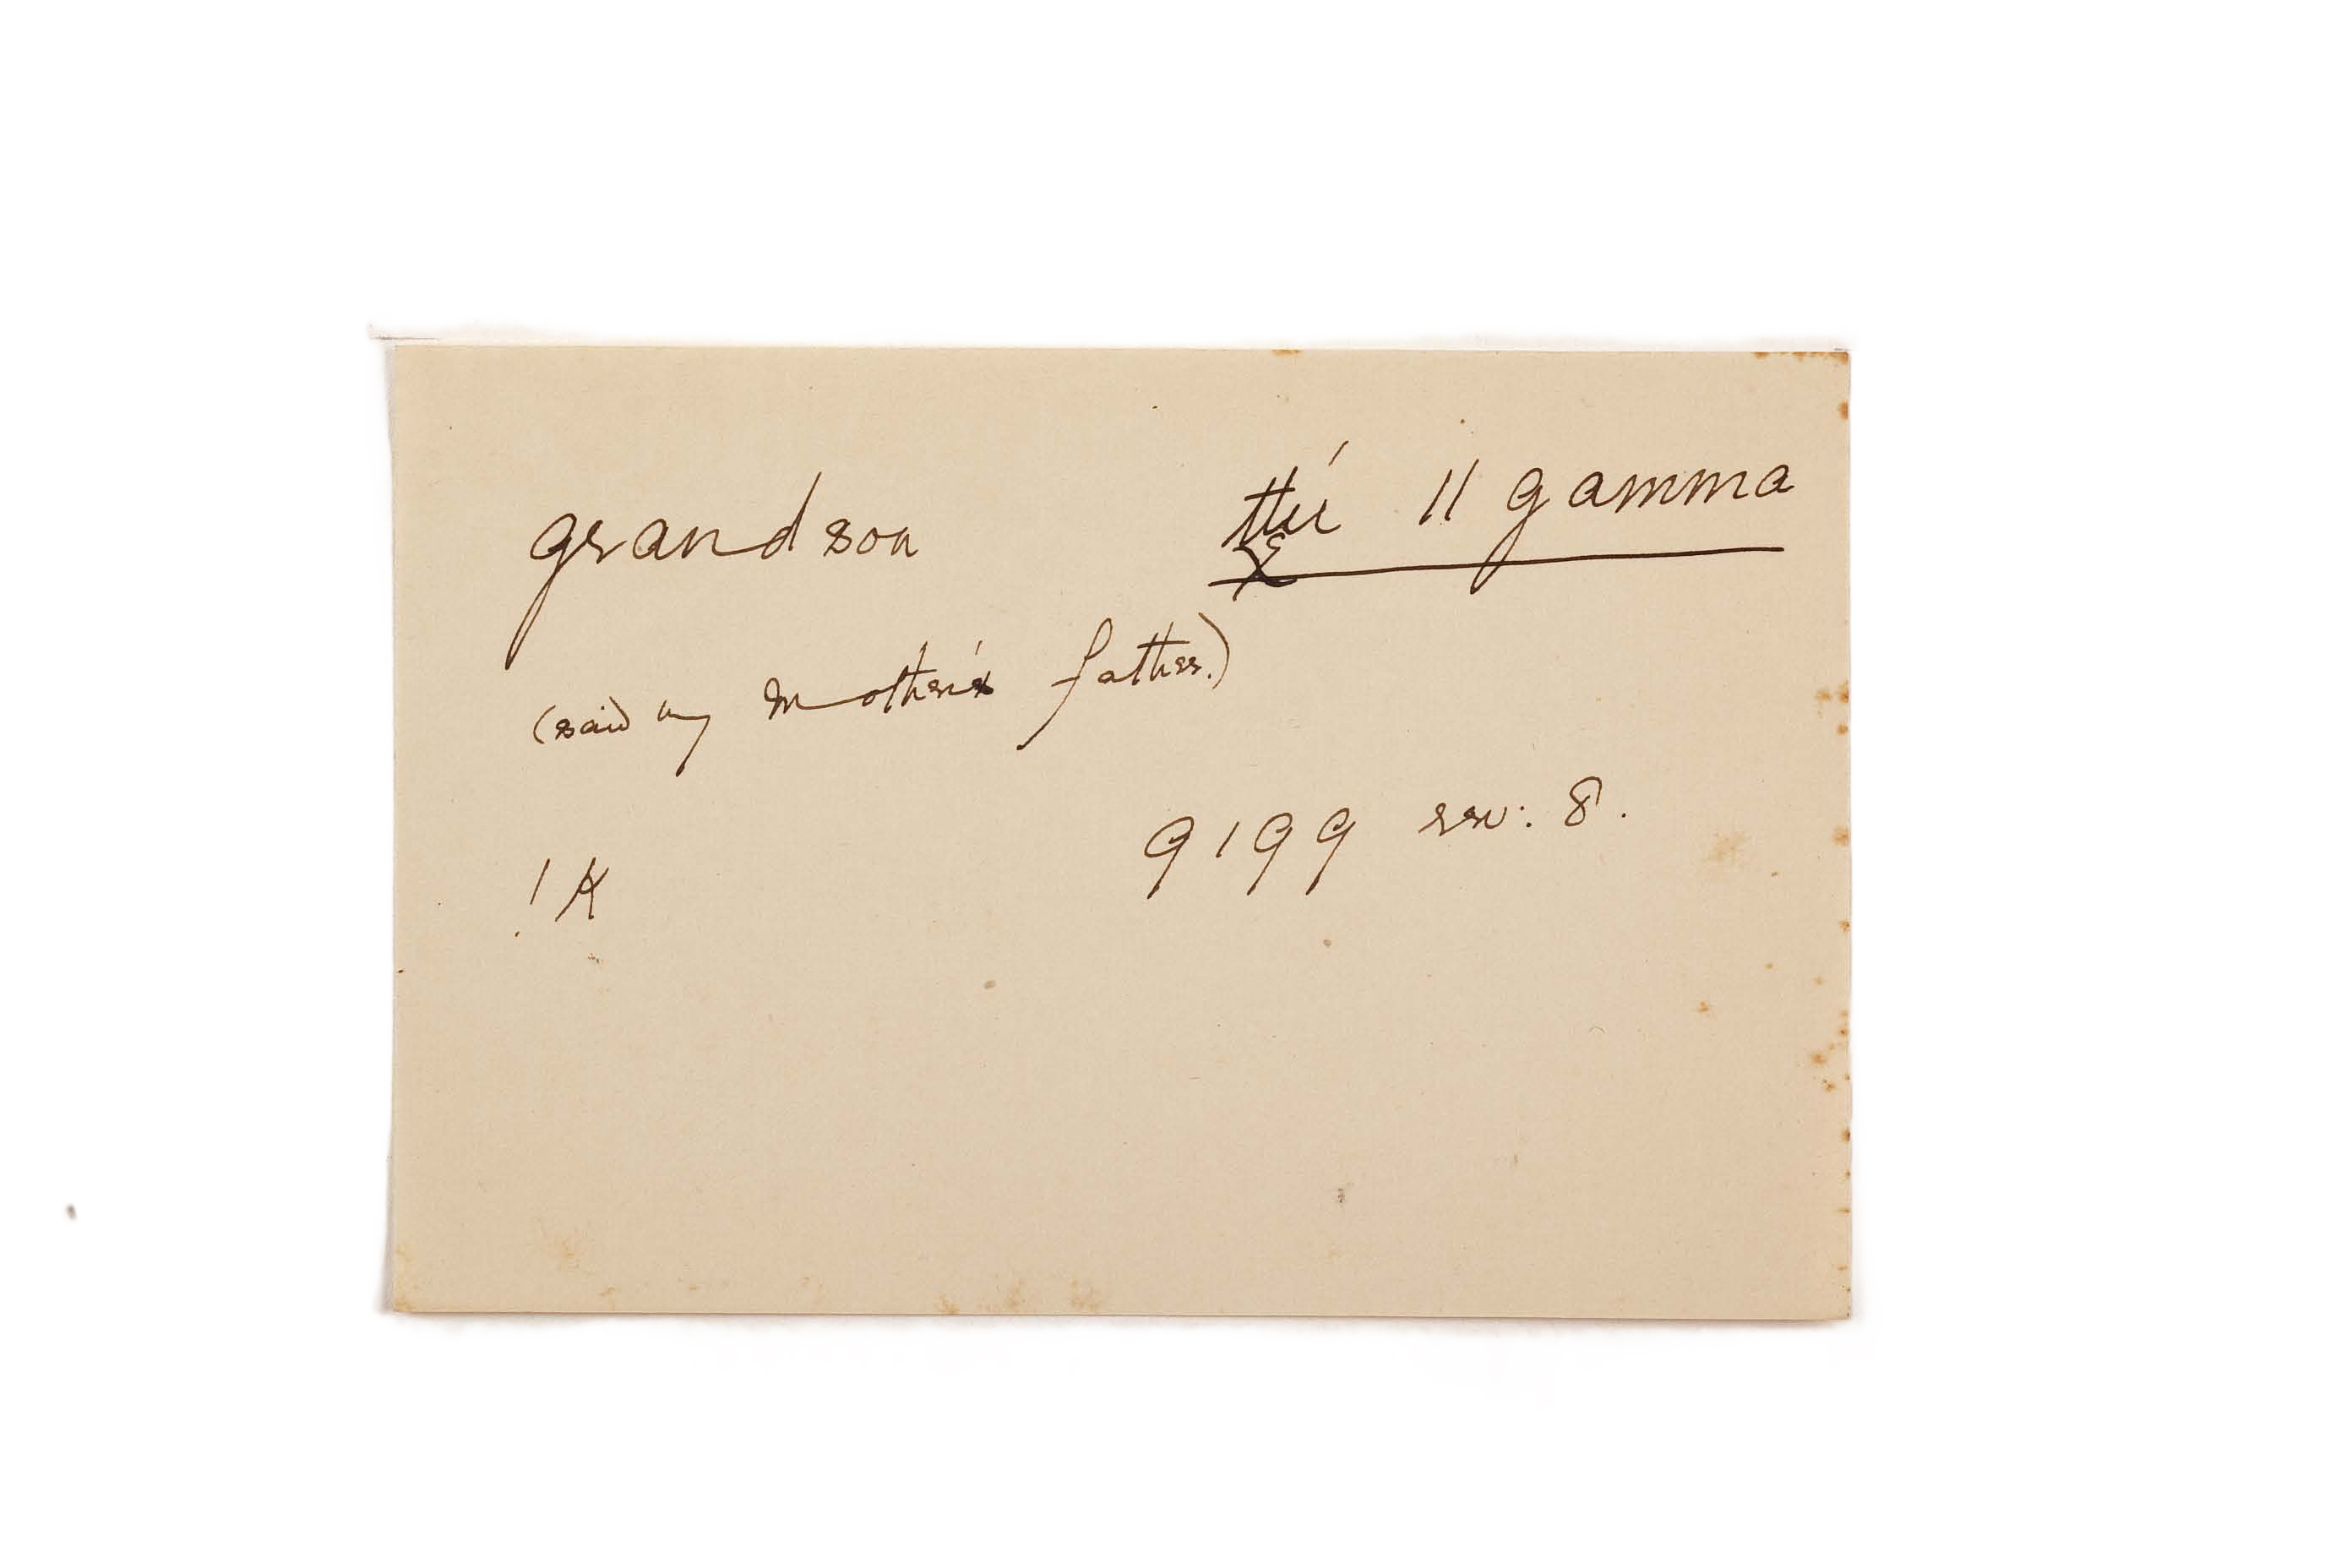 grandson ttú || gamma
(said by mother's father.)
!K 9199 rev: 8.